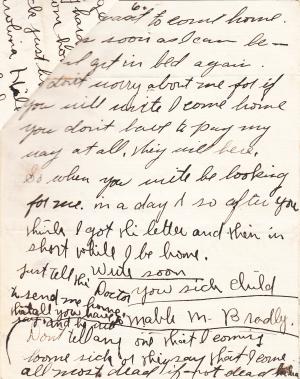 6.
want to come home.
soon as I can be
get in bed again.
don't worry about me for if
you will write I come home
you don't have to pay my
way at all. They will here.
So when you write be looking
for me. in a day & so after you
think I got the letter and then in
short while I be home.
Just tell the Write soon
Doctor you sick child
to send me home
that all you have
say. and he
Mable M. Bradly.
Don't tell any one that I coming
home sick or they say that I come
all most dead if not dead